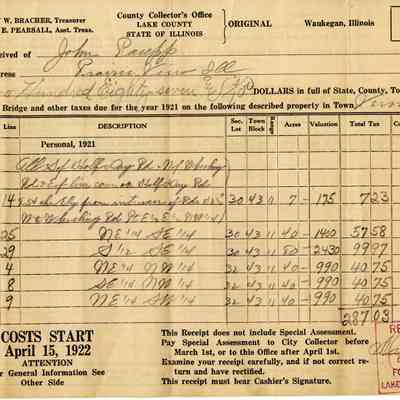 W. BRACHER, Treasurer
E. PEARSALL, Asst. Treas.
County Collector's Office
LAKE COUNTY
STATE OF ILLINOIS
ORIGINAL
Waukegan, Illinois
ceived of John
ress Prairie View Ill
o Hundred Eighty seven & DOLLARS in full of State, County, To
Bridge and other taxes due for the year 1921 on the following described property in Town Vern
Line DESCRIPTION Sec. Lot Town Block Acres Valuation Total Tax C
Personal, 1921
All Sd Half Day Rd
Half Day Rd
14 30 43 11 7 - 175 7 23
25 NE 1/4 SE 1/4 30 43 11 40 - 1400 57 58
29 S 1/2 SE 1/4 30 43 11 80 - 2430 99 97
4 NE 1/4 NW 1/4 32 43 11 40 - 990 40 75
8 SE 1/4 NW 1/4 32 43 11 40 - 990 40 75
9 NE 1/4 SW 1/4 32 43 11 40 - 990 40 75
287.03
COSTS START
April 15, 1922
ATTENTION
r General Information See
Other Side
This Receipt does not include Special Assessment.
Pay Special Assessment to City Collector before
March 1st, or to this Office after April 1st.
Examine your receipt carefully, and if not correct re-
turn and have rectified.
This receipt must bear Cashier's Signature.
RE
FO
LAKE